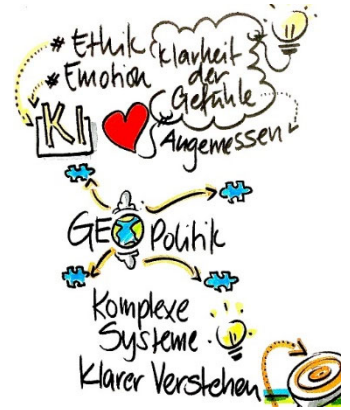 # Ethik
# Emotion
Klarheit
der
Gefühle
KI
Angemessen
GEO Politik
Komplexe
Systeme
Klarer Verstehen